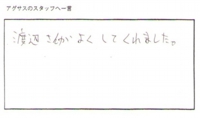 アグサスのスタッフへ一言
渡辺さんがよくしてくれました。